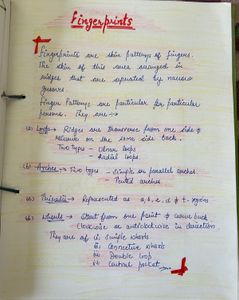 Fingerprints
Fingerprints are skin patterns of fingers.
The skin of this area arranged in
ridges that are separated by narrow
grooves.
Finger Patterns are particular for particular
persons. They are →
(a) Loops → Ridges are transverse from one side &
returns on the same side back.
Two types - Ulnar loops
- Radial loops
(b) Arches → Two types - Simple or parallel arches
- Tented arches
(c) Triradii → Represented as a, b, c, d & t - regions
(d) Whorls → Start from one point & come back
Clockwise or anticlockwise in direction
They are of i. Simple whorls
ii. whorls
iii. Double loop
iv. Central pocket